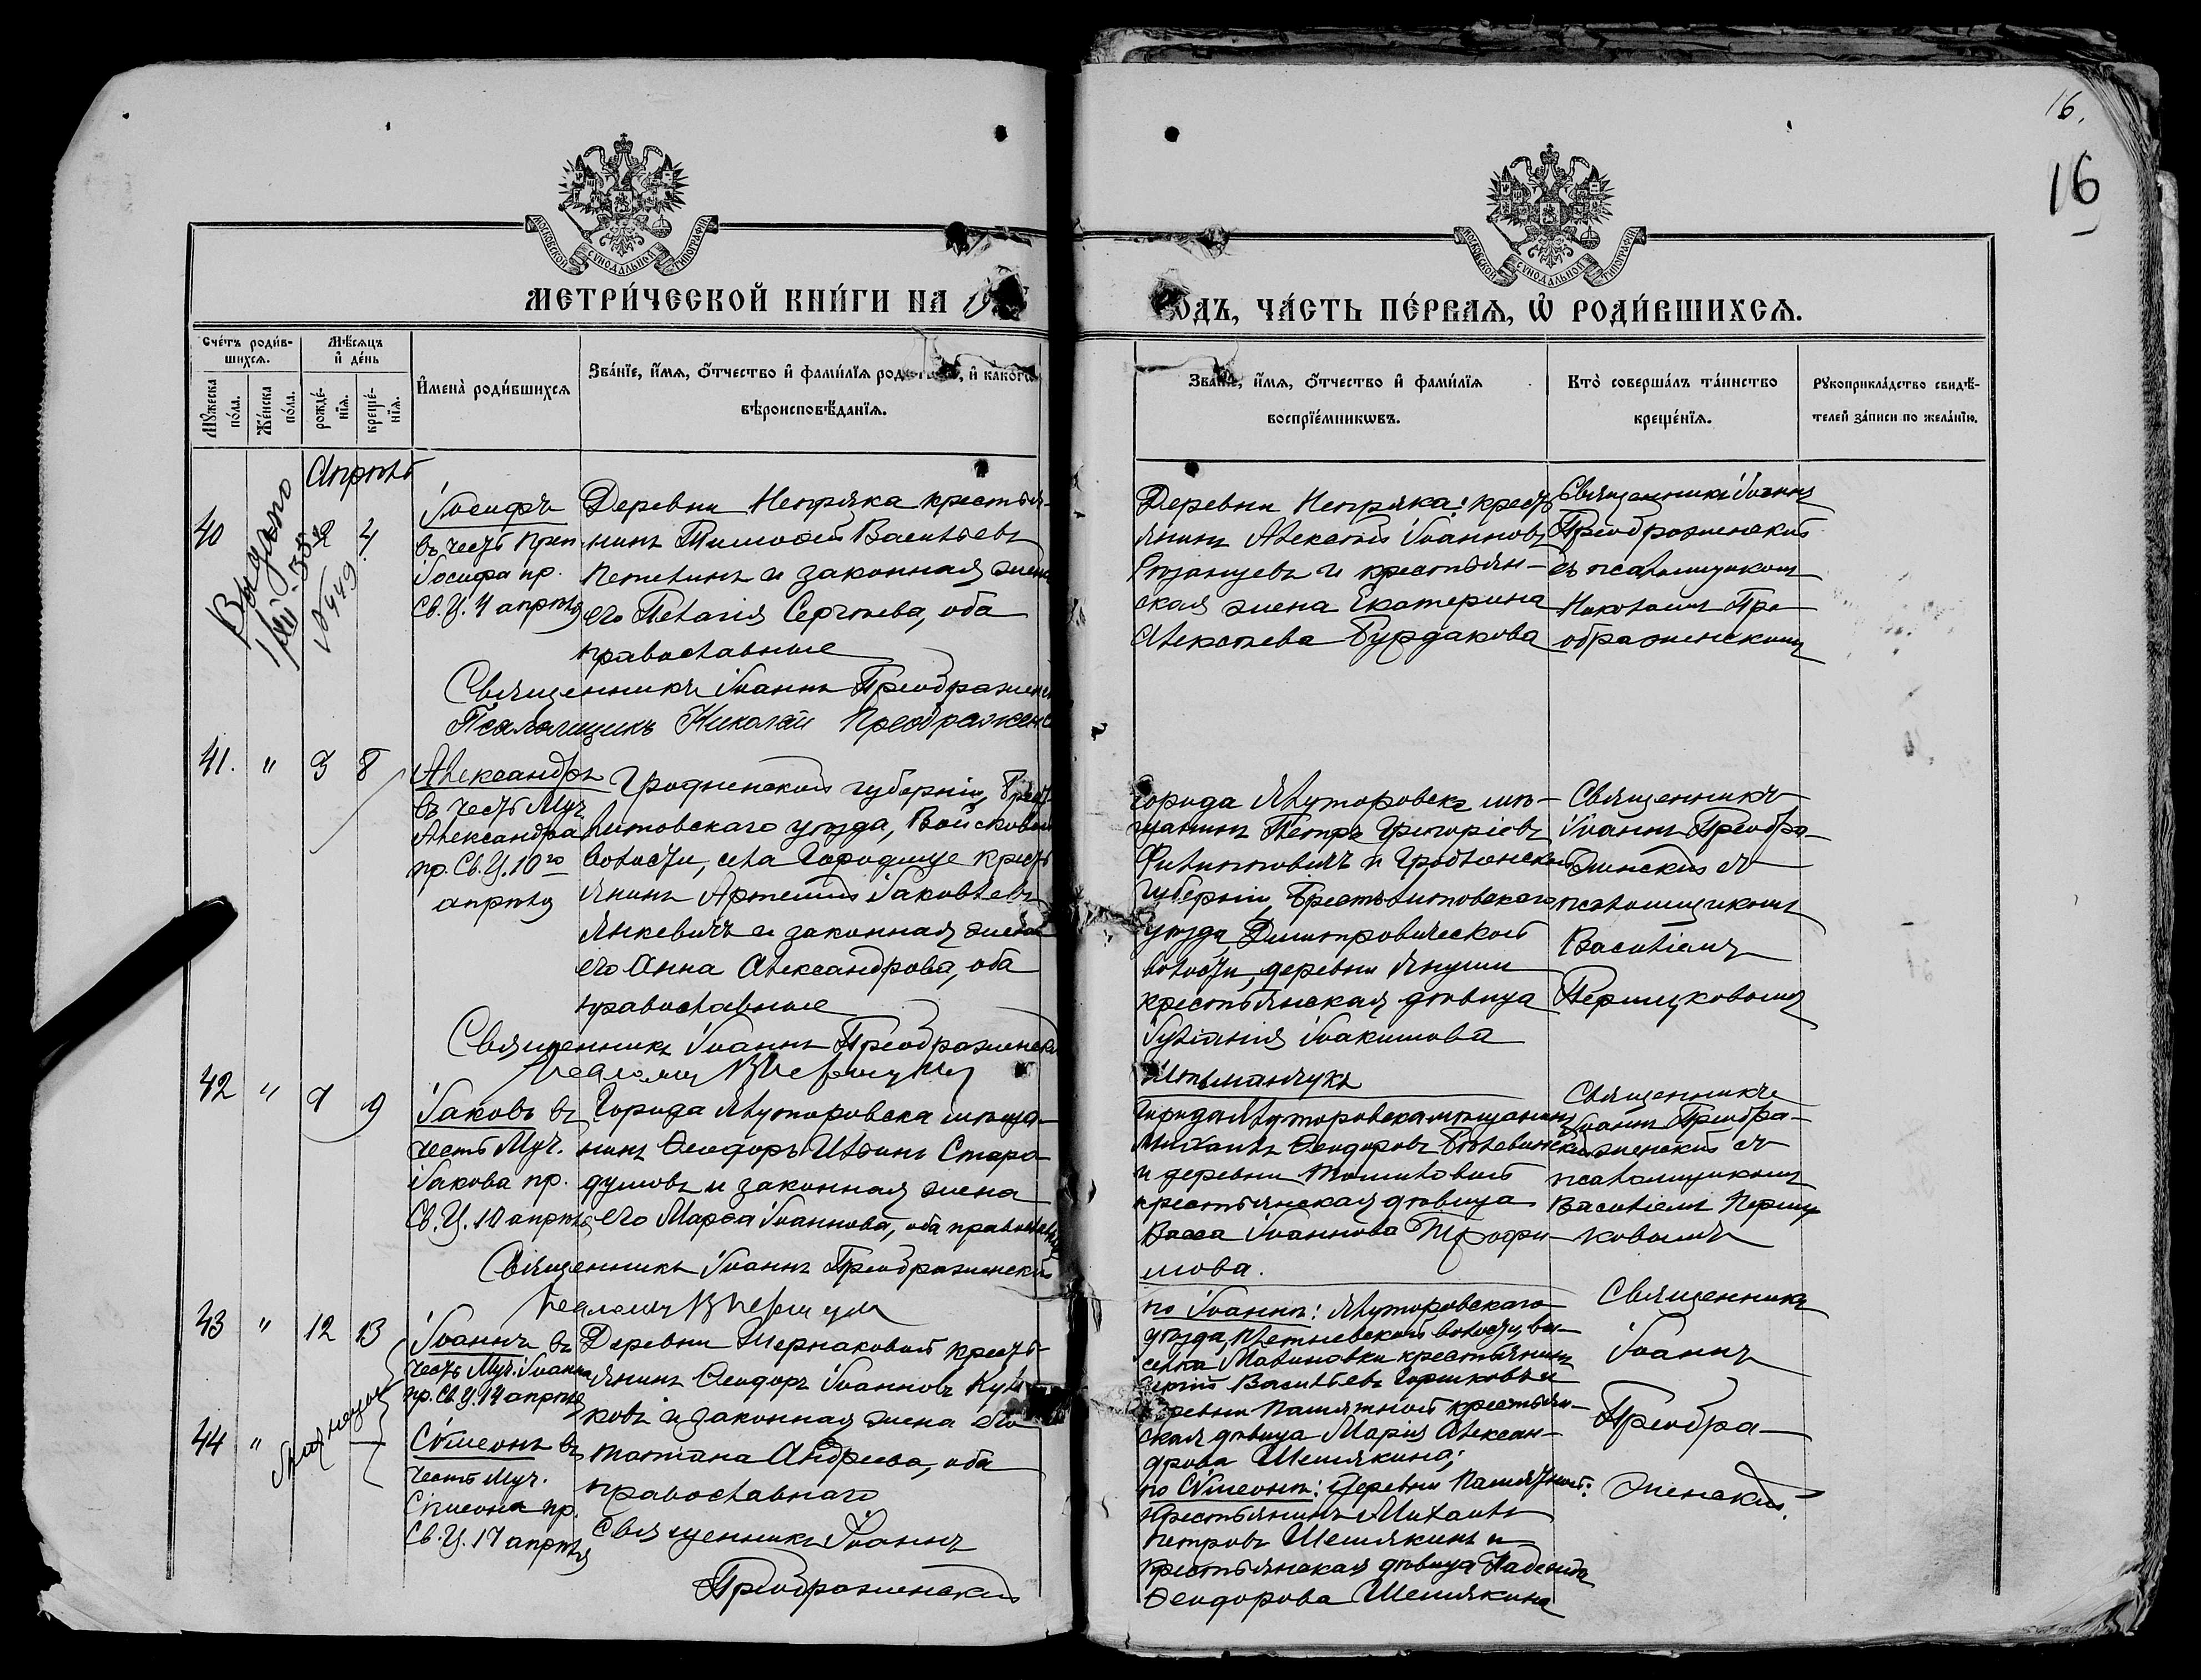 16.
16
МОСКОВСКОЙ СѴНОДАЛЬНОЙ ТИПОГРАФІИ
МОСКОВСКОЙ СѴНОДАЛЬНОЙ ТИПОГРАФІИ
МЕТРИ́ЧЕСКОЙ КНИ́ГИ НА 19
ОДЪ, ЧА́СТЬ ПЕ́РВАѦ, Ѡ҆ РОДИ́ВШИХСѦ.
Сче́тъ роди́в-
шихсѧ.
Мѣ́сѧцъ
и҆ де́нь
Мꙋ́жеска
по́ла.
Же́нска
по́ла.
рожде́-
нїѧ.
креще́-
нїѧ.
И҆мена̀ роди́вшихсѧ
Зва́нїе, и҆́мѧ, ѻ҆́тчество и҆ фами́лїѧ и҆ како́гѡ
вѣроисповѣ́данїѧ.
Зва́нїе, и҆́мѧ, ѻ҆́тчество и҆ фами́лїѧ
воспрїе́мникѡвъ.
Кто̀ соверша́лъ та́инство
креще́нїѧ.
Рꙋкоприкла́дство свидѣ́-
телей за́писи по жела́нїю.
Апрѣль
Выдано
№449
40
2
4
Іосифъ
въ честь Преп.
Іосифа пр.
Св. Ц. 4 апрѣля
Деревни Непряка крестья-
нинъ Тимофей Васильевъ
Пепелинъ и законная жена
его Пелагія Сергѣева, оба
православные
Священникъ Іоаннъ Преображенск
Псаломщикъ Николай Преображенс
Деревни Непряка: кресть
янинъ Алексѣй Іоанновъ
Рязанцевъ и крестьян-
ская жена Екатерина
Алексѣева Бурдакова
Священникъ Іоаннъ
Преображенскій
съ псаломщикомъ
Николаемъ Пре
ображенскимъ
41.
"
3
8
Александръ
въ честь Муч.
Александра
пр. Св. Ц. 10го
апрѣля
Гродненской губерніи, Брест
Литовскаго уѣзда, Войсковой
волости, села Городище кресть
янинъ Артемій Іаковлевъ
Янкевичъ и законная жена
его Анна Александрова, оба
православные
Священникъ Іоаннъ Преображенск
Псаломщ В Першук
Города Ялуторовска мѣ-
щанинъ Петръ Григоріевъ
Филипповичъ и Гродненской
губерніи, Брестълитовскаго
уѣзда, Дмитровичской
волости, деревни Януши
крестьянская дѣвица
Іуліанія Іоакимова
Священникъ
Іоаннъ Преобра-
женскій съ
псаломщикомъ
Василіемъ
Першуковымъ
42
"
9
9
Іаковъ въ
честь Муч.
Іакова пр.
Св. Ц. 10 апрѣля
Города Ялуторовска мѣща-
нинъ Ѳеодоръ Ильинъ Старо
думовъ и законная жена
его Марѳа Іоаннова, оба православные
Священникъ Іоаннъ Преображенскій
Псаломщ В Першук
Города Ялуторовска мѣщанинъ
Михаилъ Ѳеодоровъ
и деревни Томиловой
крестьянская дѣвица
Васса Іоаннова Трофи-
мова.
Священникъ
Іоаннъ Преобра-
женскій съ
псаломщикомъ
Василіемъ Першу
ковымъ
43
"
12
13
Іоаннъ въ
честь Муч. Іоанна
пр. Св. Ц. 14 апрѣля
44
"
Близнецы
Сѵмеонъ въ
честь Муч.
Сѵмеона пр.
Св. Ц. 17 апрѣля
Деревни Шернаковой кресть-
янинъ Ѳеодоръ Іоанновъ Кули
ковъ и законная жена его
Татіана Андреева, оба
православнаго
Священникъ Іоаннъ
Преображенскій
по Іоаннѣ: Ялуторовскаго
уѣзда, Плетневской волости, вы-
селка Малиновки крестьянинъ
Сергій Васильевъ Горшковъ и
деревни Памятной крестьян-
ская дѣвица Марія Алексан-
дрова Шемякина;
по Сѵмеонѣ: деревни Памятной:
крестьянинъ Михаилъ
Петровъ Шемякинъ и
крестьянская дѣвица Надежда
Ѳеодорова Шемякина
Священникъ
Іоаннъ
Преобра-
женскій.